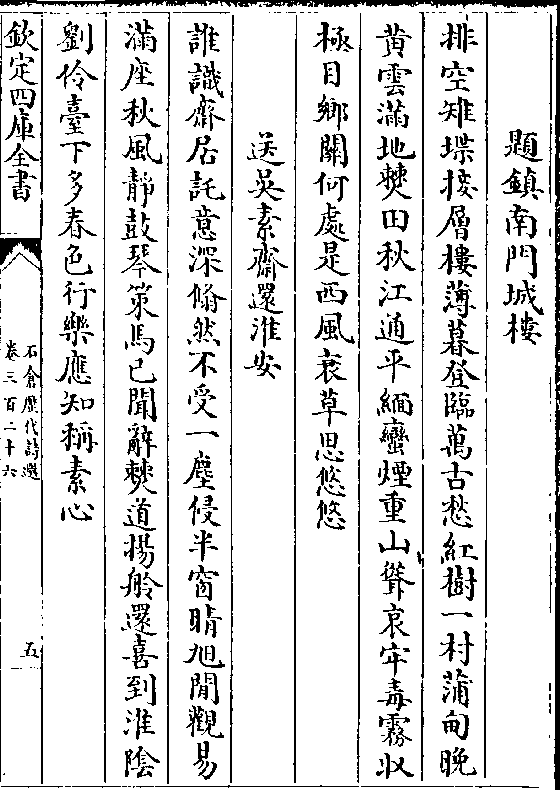 題鎮南門城樓
排空雉堞接層樓薄暮登臨萬古愁紅樹一村蒲甸晩
黄雲滿地僰田秋江通平緬蠻煙重山聳哀牢毒霧收
極目鄉關何處是西風衰草思悠悠
送吳素齋還淮安
誰識齋居託意深翛然不受一塵侵半窗晴旭閒觀易
滿座秋風靜鼓琴策馬已聞辭僰道揚舲還喜到淮陰
劉伶臺下多春色行樂應知稱素心
欽定四庫全書
石倉歷代詩選
卷三百二十六
五